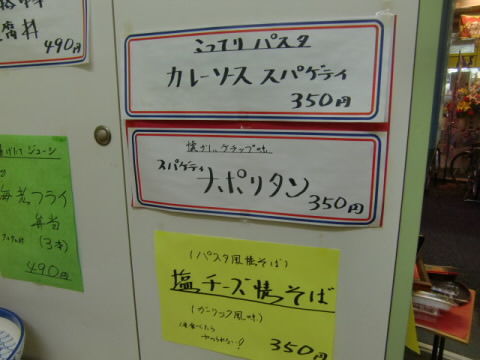 490円
こってりパスタ
カレーソース スパゲティ
350円
懐かしいケチャップ味
スパゲティ
ナポリタン
350円
揚げたて ジューシー
海老フライ
弁当
(3本)
490円
(パスタ風焼そば)
塩チーズ焼そば
(ガーリック風味)
350円